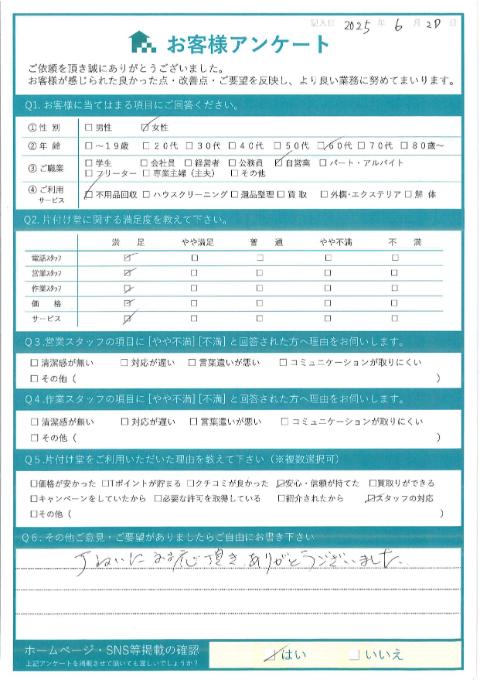 記入日 2025 年 6 月 20 日
お客様アンケート
ご依頼を頂き誠にありがとうございました。
お客様が感じられた良かった点・改善点・ご要望を反映し、より良い業務に努めてまいります。
Q1.お客様に当てはまる項目にご回答ください。
①性別 □男性 ☑女性
②年齢 □～19歳 □20代 □30代 □40代 □50代 ☑60代 □70代 □80歳～
③ご職業 □学生 □会社員 □経営者 □公務員 ☑自営業 □パート・アルバイト
□フリーター □専業主婦(主夫) □その他
④ご利用サービス ☑不用品回収 □ハウスクリーニング □遺品整理 □買取 □外構・エクステリア □解体
Q2.片付け堂に関する満足度を教えて下さい。
満足 やや満足 普通 やや不満 不満
電話スタッフ ☑ □ □ □ □
営業スタッフ ☑ □ □ □ □
作業スタッフ ☑ □ □ □ □
価格 ☑ □ □ □ □
サービス ☑ □ □ □ □
Q3.営業スタッフの項目に[やや不満][不満]と回答された方へ理由をお伺いします。
□清潔感が無い □対応が遅い □言葉遣いが悪い □コミュニケーションが取りにくい
□その他( )
Q4.作業スタッフの項目に[やや不満][不満]と回答された方へ理由をお伺いします。
□清潔感が無い □対応が遅い □言葉遣いが悪い □コミュニケーションが取りにくい
□その他( )
Q5.片付け堂をご利用いただいた理由を教えて下さい(※複数選択可)
□価格が安かった □Tポイントが貯まる □クチコミが良かった ☑安心・信頼が持てた □買取りができる
□キャンペーンをしていたから □必要な許可を取得している □紹介されたから ☑スタッフの対応
□その他( )
Q6.その他ご意見・ご要望がありましたらご自由にお書き下さい
頂き、ありがとうございました。
ホームページ・SNS等掲載の確認
上記アンケートを掲載させて頂いても宜しいでしょうか？
☑はい □いいえ